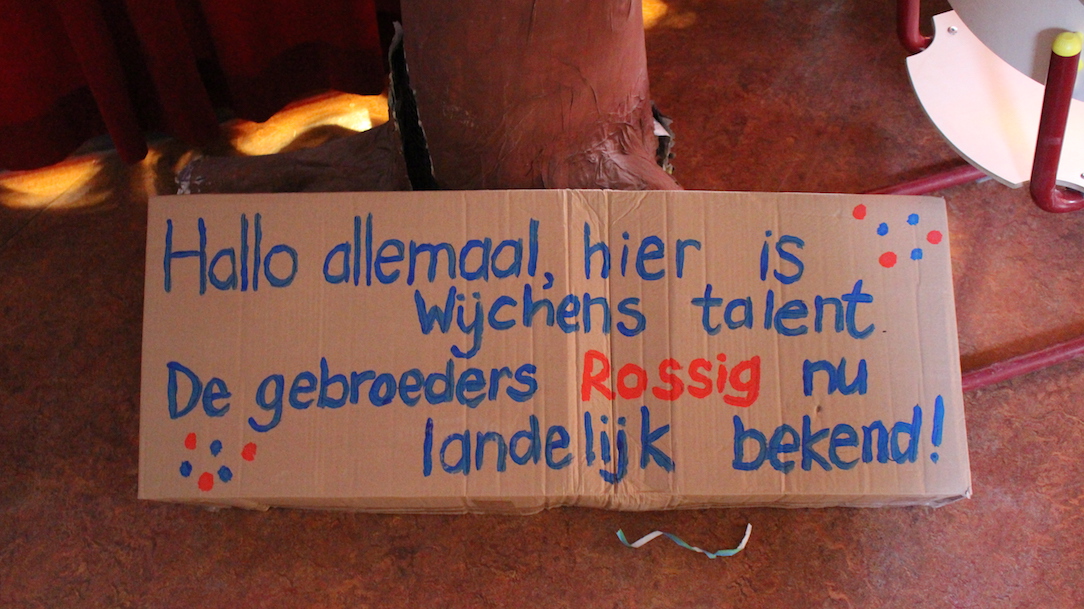 Hallo allemaal, hier is
Wijchens talent
De gebroeders Rossig nu
landelijk bekend!